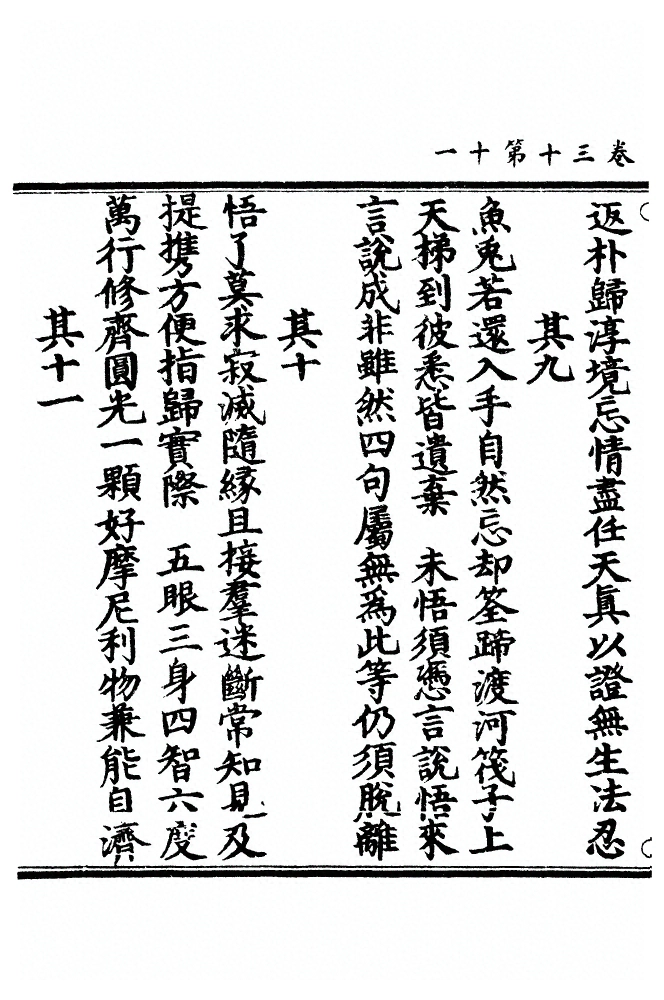 卷三十第十一
返朴歸淳境忘情盡任天真以證無生法忍
其九
魚兎若還入手自然忘却筌蹄渡河筏子上
天梯到彼悉皆遺棄　未悟須憑言說悟來
言說成非雖然四句屬無為此等仍須脫離
其十
悟了莫求寂滅隨緣且接羣迷斷常知見及
提携方便指歸實際　五眼三身四智六度
萬行修齊圓光一顆好摩尼利物兼能自濟
其十一